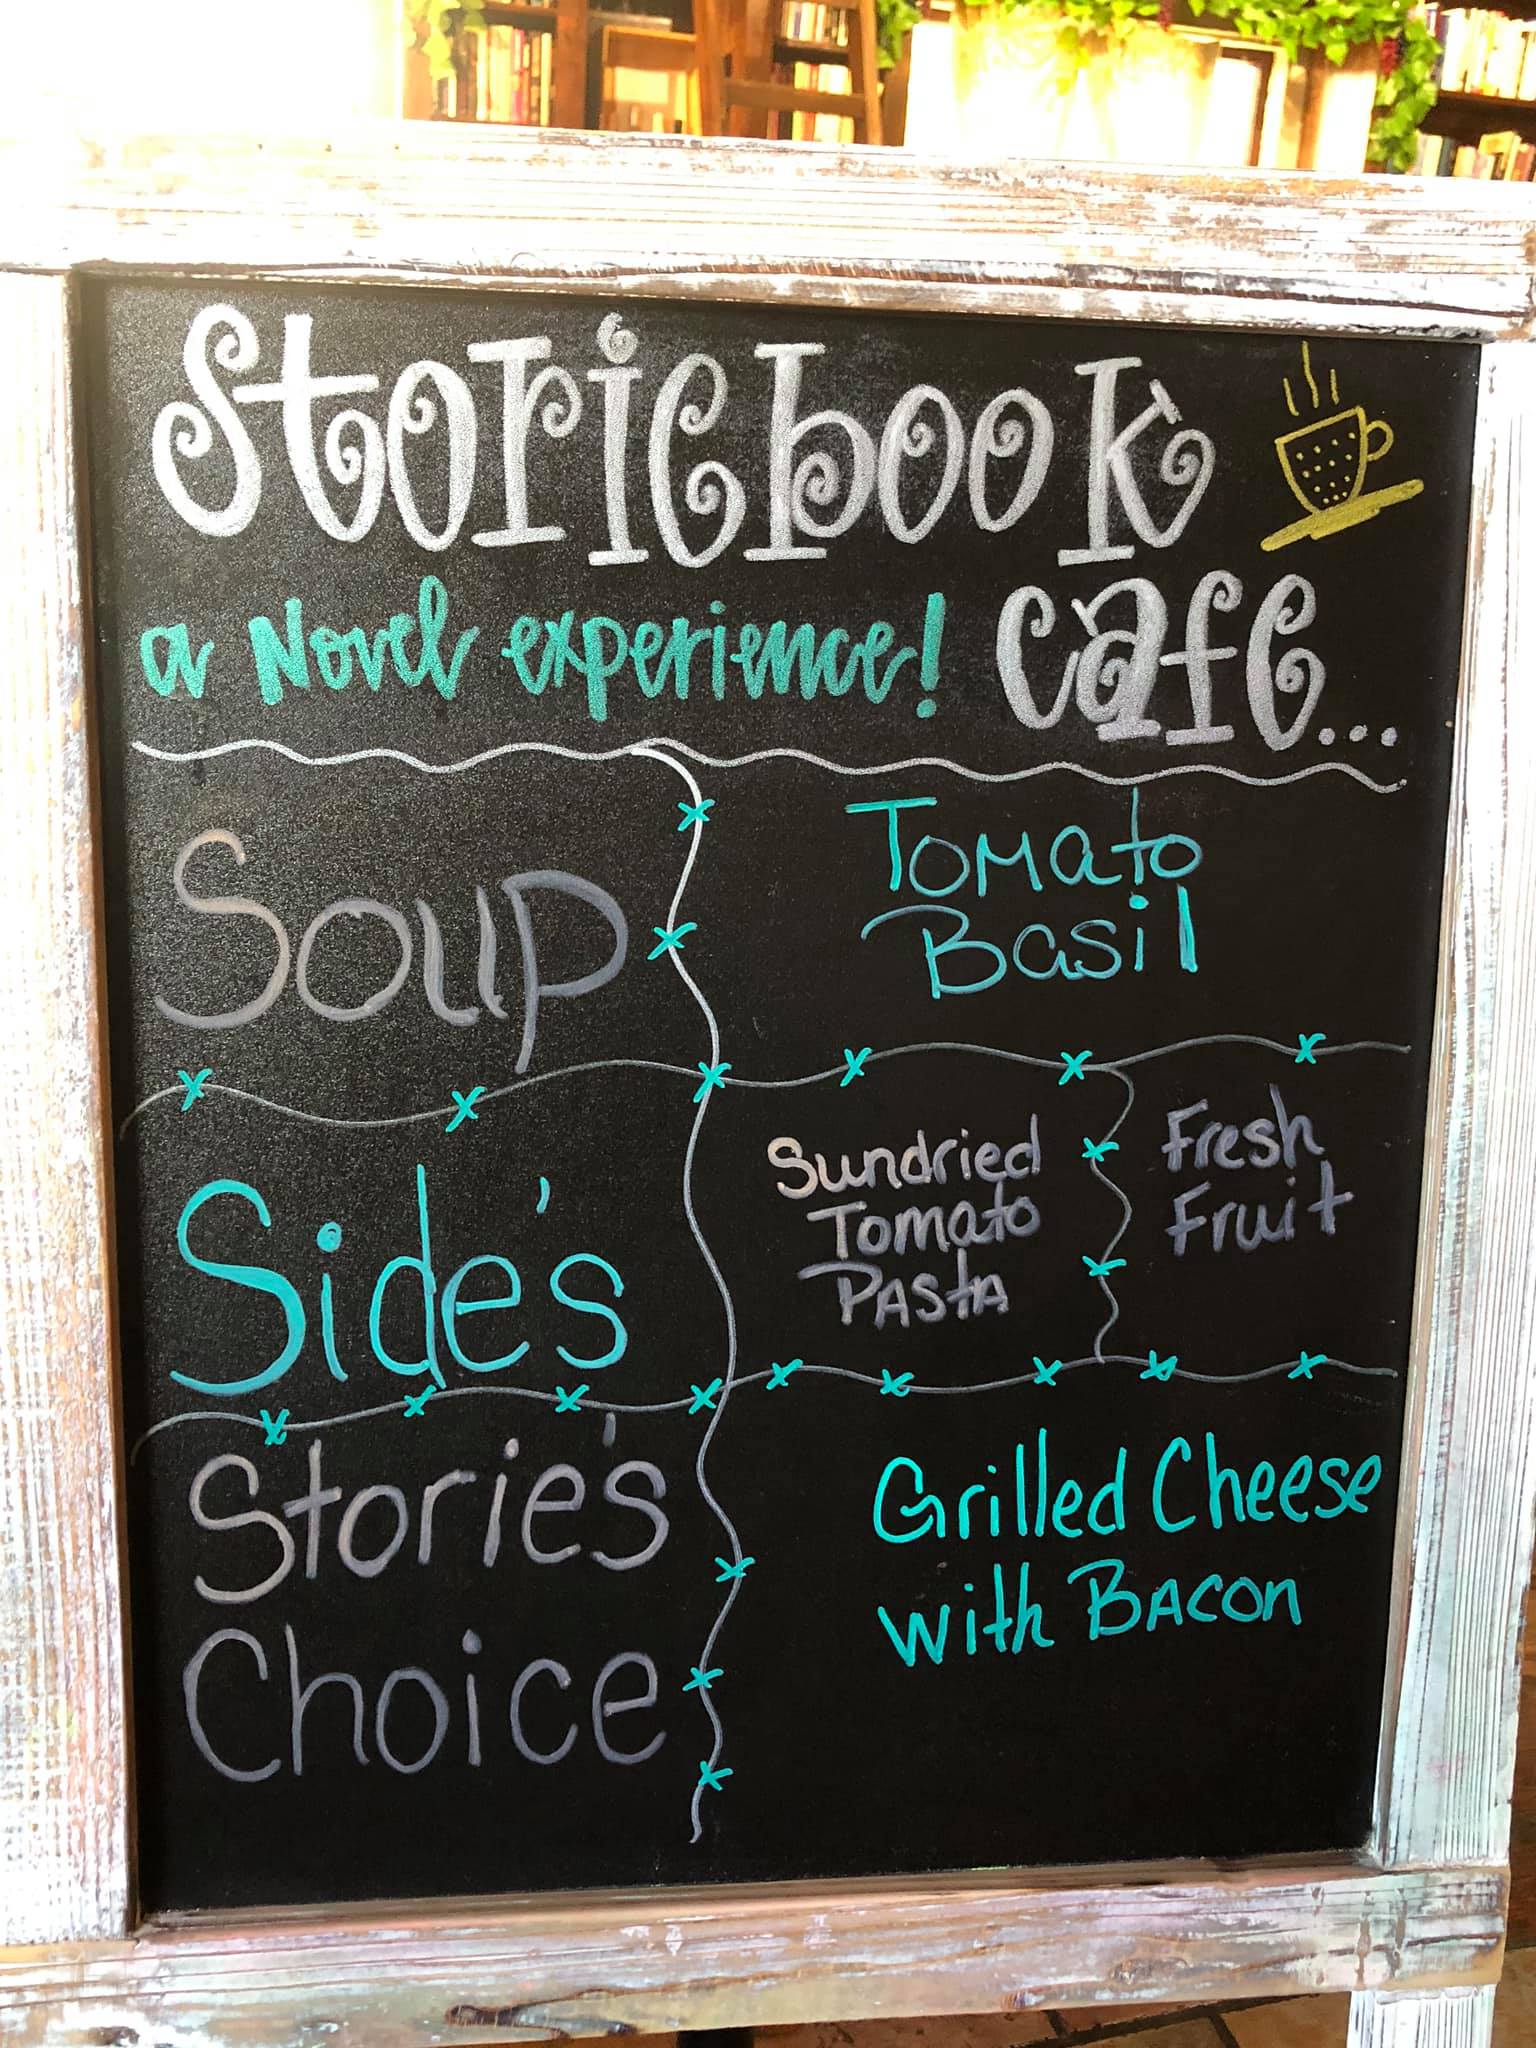 Storiebook
a Novel experience! Cafe...
Soup
Tomato
Basil
Side's
Sundried
Tomato
Pasta
Fresh
Fruit
Storie's
Choice
Grilled Cheese
with Bacon